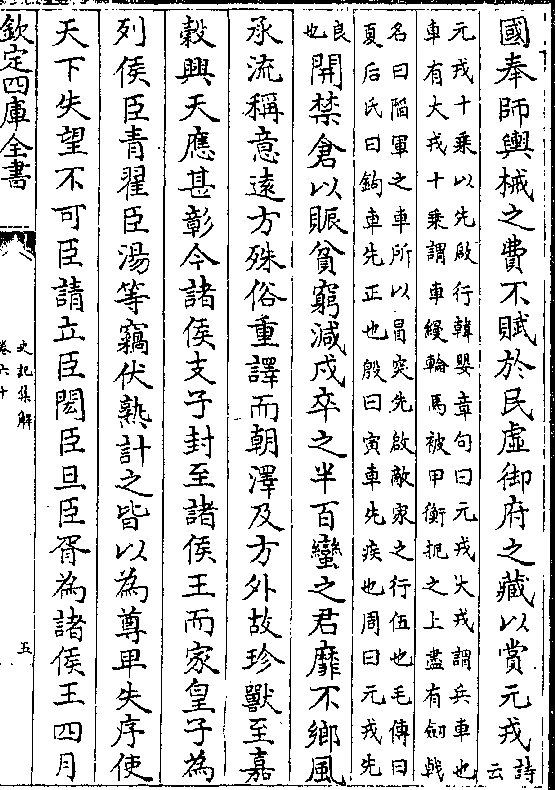 國奉師輿械之費不賦於民虛御府之藏以賞元戎詩云
元戎十乗以先啟行韓嬰章句曰元戎大戎謂兵車也
車有大戎十乗謂車縵輪馬被甲衡扼之上盡有劒㦸
名曰陷軍之車所以冒突先啟敵家之行伍也毛傳曰
夏后氏曰鉤車先正也殷曰寅車先疾也周曰元戎先
良也開禁倉以賑貧窮減戍卒之半百蠻之君靡不鄉風
承流稱意逺方殊俗重譯而朝澤及方外故珍獸至嘉
穀興天應甚彰今諸侯支子封至諸侯王而家皇子為
列侯臣青翟臣湯等竊伏熟計之皆以為尊卑失序使
天下失望不可臣請立臣閎臣旦臣胥為諸侯王四月
欽定四庫全書
史記集解
卷六十
五